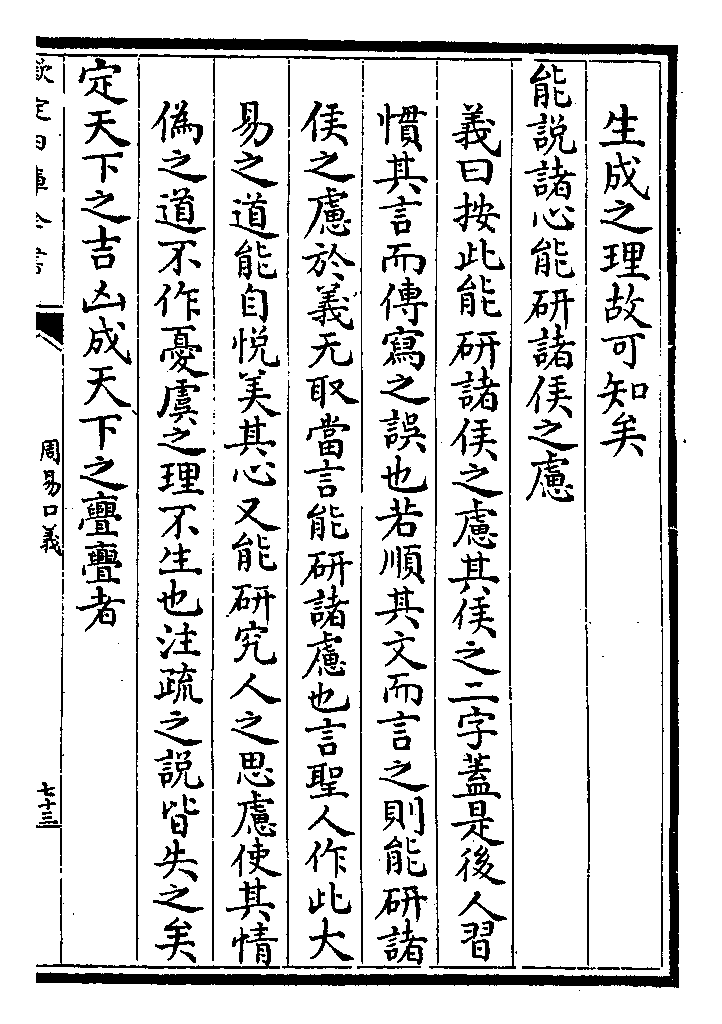 生成之理故可知矣
能説諸心能研諸侯之慮
義曰按此能研諸侯之慮其侯之二字蓋是後人習
慣其言而傳寫之誤也若順其文而言之則能研諸
侯之慮於義无取當言能研諸慮也言聖人作此大
易之道能自悦美其心又能研究人之思慮使其情
偽之道不作憂虞之理不生也注疏之説皆失之矣
定天下之吉凶成天下之亹亹者
欽定四庫全書
周易口義
七十三